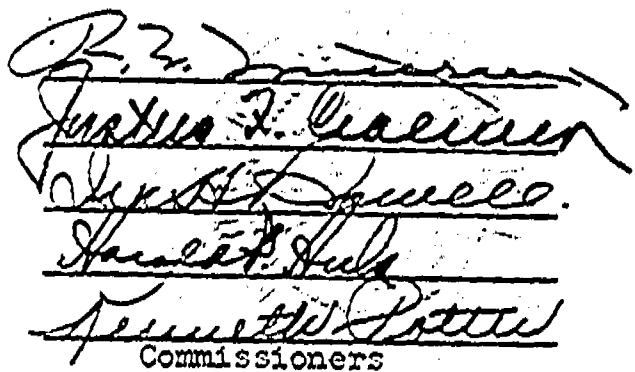 Justus F. Craemer
Ira H. Rowell.
Harold P. Huls
Kenneth Potter
Commissioners